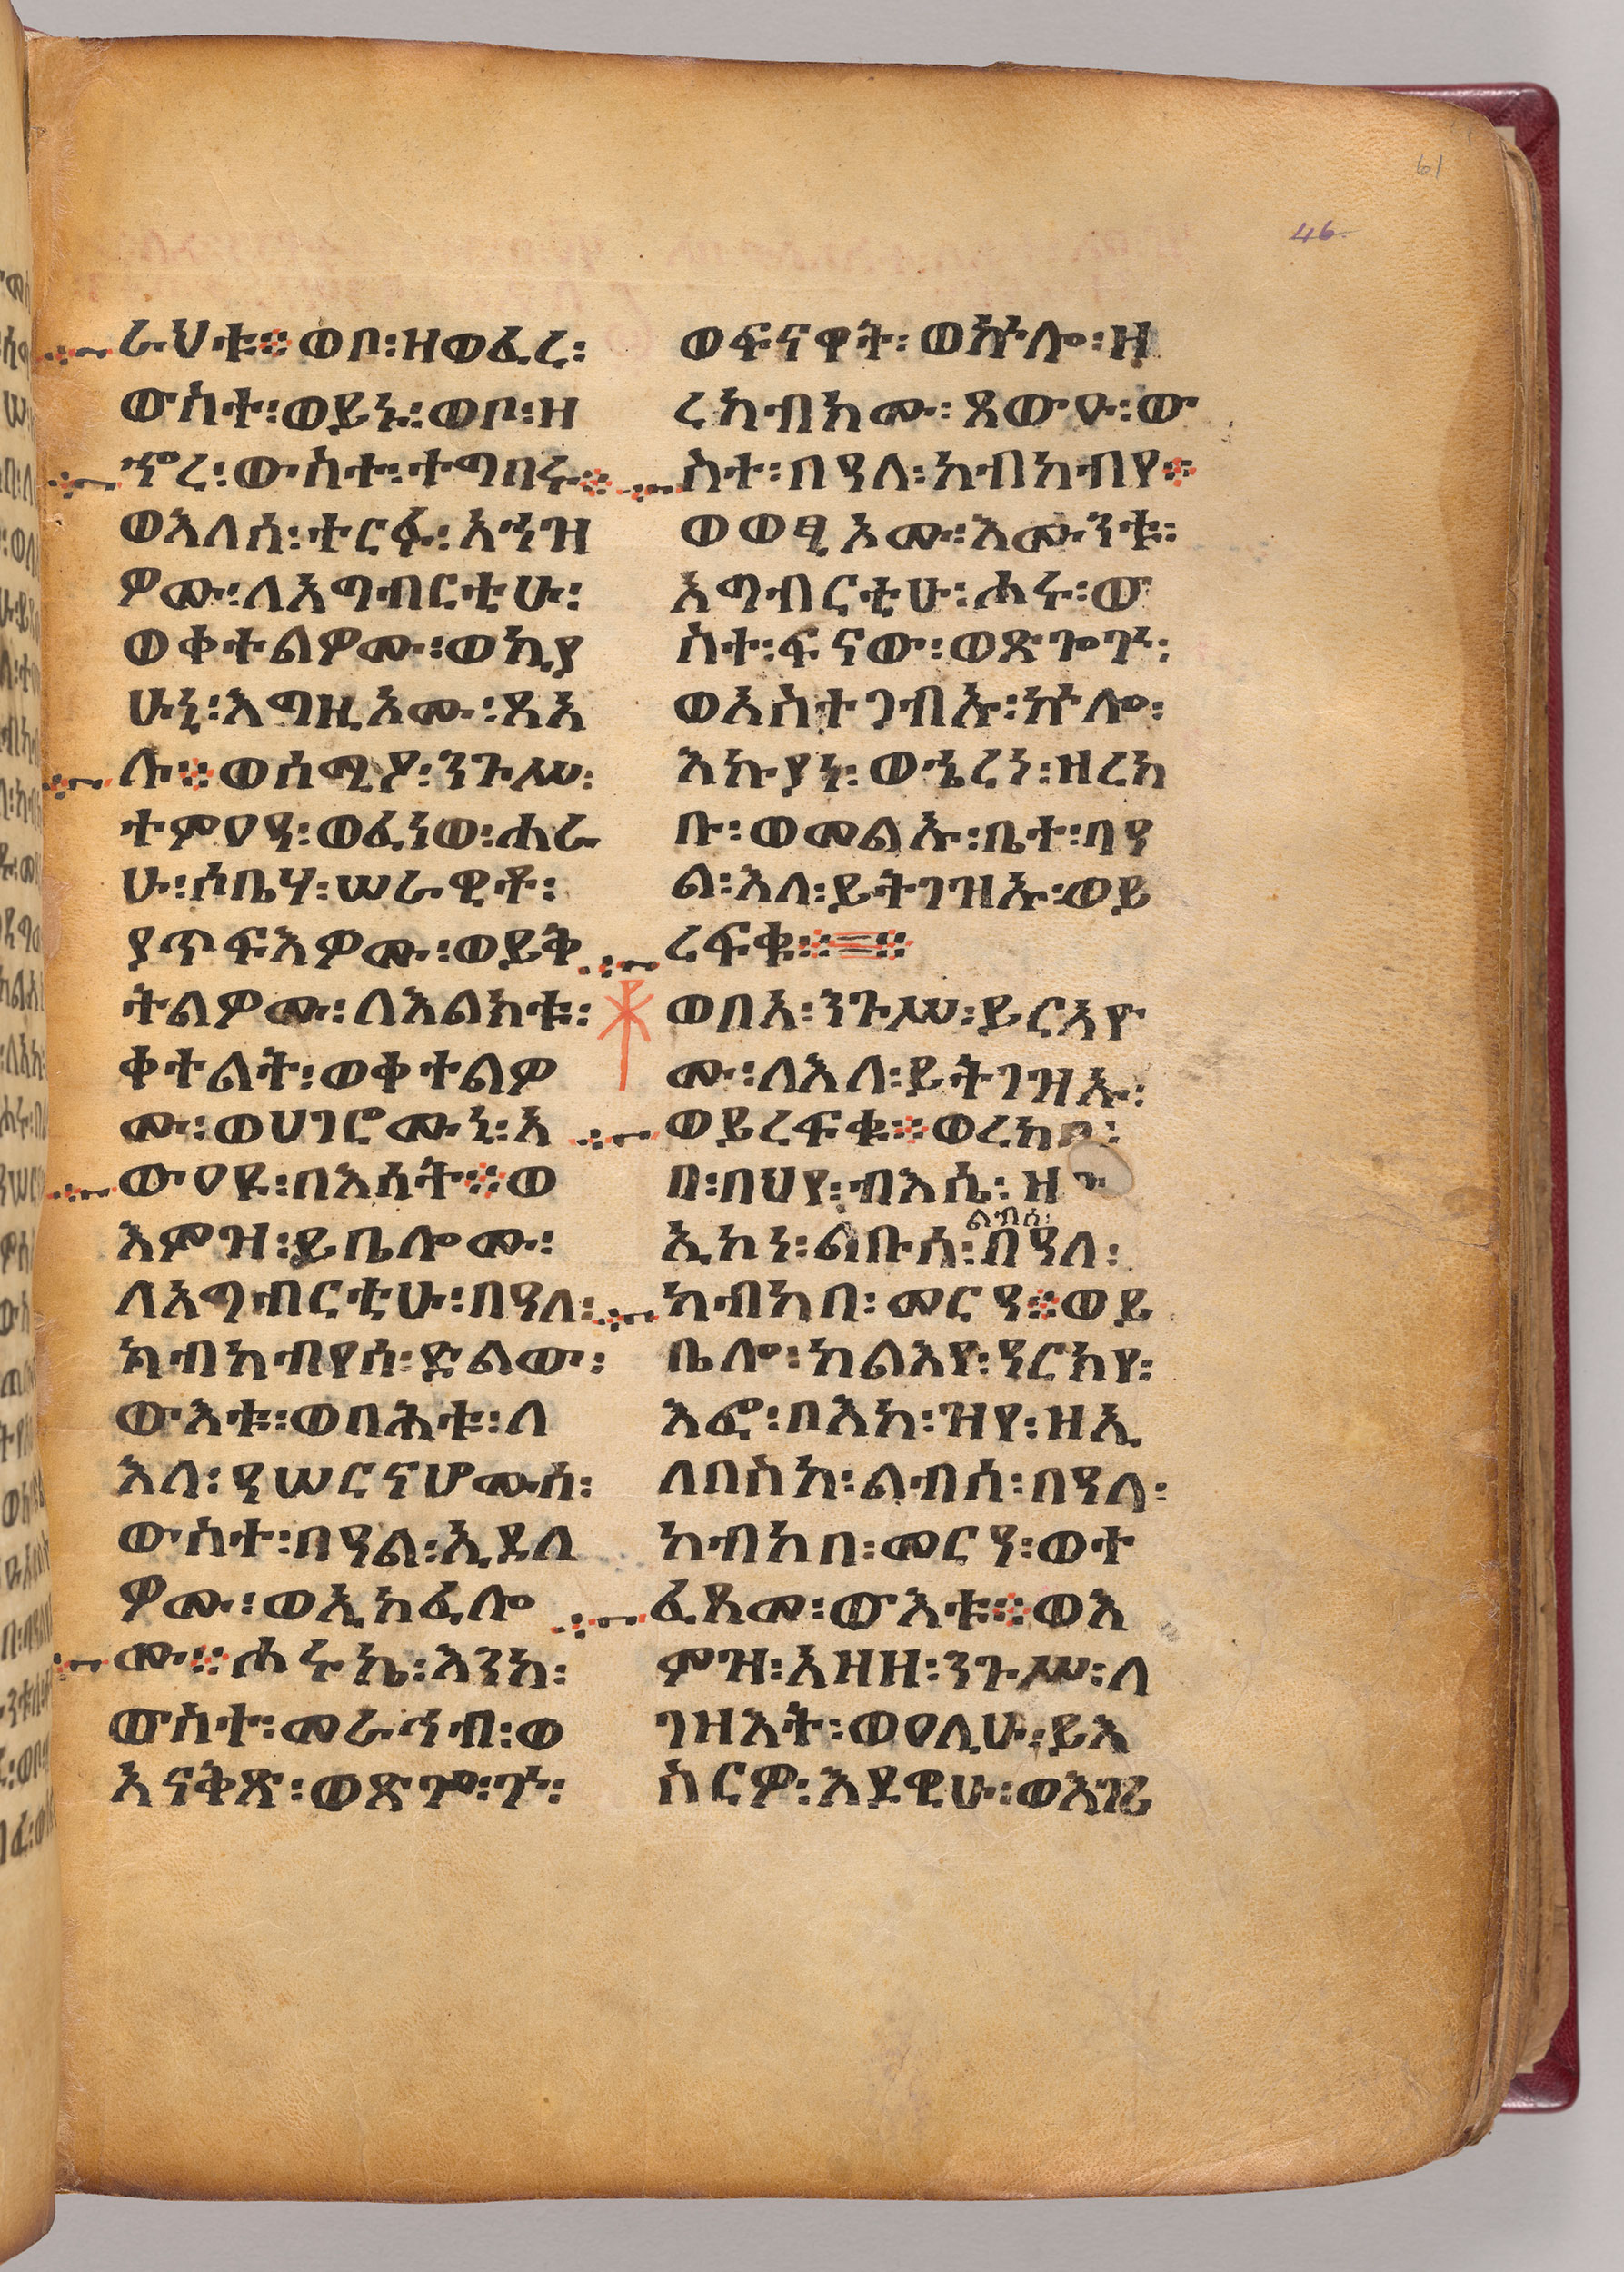 61
46.
ራህቱ፨ወቦ፡ዘወፈረ፡
ውስተ፡ወይኑ፡ወቦ፡ዘ
ኆረ፡ውስተ፡ተግባሩ፨
ወእለሰ፡ተርፉ፡አኀዝ
ዎሙ፡ለአግብርቲሁ፡
ወቀተልዎሙ፡ወኪያ
ሁኒ፡እግዚኦሙ፡ጸአ
ሉ፨ወሰሚዖ፡ንጉሥ፡
ተምዐዓ፡ወፈነወ፡ሐራ
ሁ፡ሶቤሃ፡ሠራዊቶ፡
ያጥፍእዎሙ፡ወይቅ
ትልዎሙ፡ለእልክቱ፡
ቀተልት፡ወቀተልዎ
ሙ፡ወሀገሮሙኒ፡አ
ውዐዩ፡በእሳት፨ወ
እምዝ፡ይቤሎሙ፡
ለአግብርቲሁ፡በዓለ፡
ካብካብየሰ፡ድልው፡
ውእቱ፡ወባሕቱ፡ለ
እለ፡ዓሠርናሆሙሰ፡
ውስተ፡በዓል፡ኢደለ
ዎሙ፡ወኢከፈሎ
ሙ፨ሐሩኬ፡እንከ፡
ውስተ፡መራኅብ፡ወ
አናቅጽ፡ወጽጐጕ፡
ወፍናዋት፡ወኵሎ፡ዘ
ረካብክሙ፡ጸውዑ፡ው
ስተ፡በዓለ፡ከብካብየ፨
ወወፂኦሙ፡እሙንቱ፡
አግብርቲሁ፡ሐሩ፡ው
ስተ፡ፍናው፡ወጽጐጕ፡
ወአስተጋብኡ፡ኵሎ፡
እኩያነ፡ወኄረነ፡ዘረከ
ቡ፡ወመልኡ፡ቤተ፡በዓ
ል፡እለ፡ይትገዝኡ፡ወይ
ረፍቁ፨=፨
ወቦአ፡ንጉሥ፡ይርአዮ
ሙ፡ለእለ፡ይትገዝኡ፡
ወይረፍቁ፨ወረከበ፡
በ፡በህየ፡ብእሴ፡ዘ
ልብሰ፡
ኢኮነ፡ልቡሰ፡በዓለ፡
ካብካበ፡መርዓ፨ወይ
ቤሎ፡ከልእየ፡ዓርክየ፡
እፎ፡ቦእከ፡ዝየ፡ዘኢ
ለበስከ፡ልብሰ፡በዓለ፡
ከብካበ፡መርዓ፡ወተ
ፈጸመ፡ውእቱ፨ወእ
ምዝ፡አዘዘ፡ንጉሥ፡ለ
ገዝእት፡ወዐሊሁ፡ይእ
ስርዎ፡እደዊሁ፡ወእገሪ